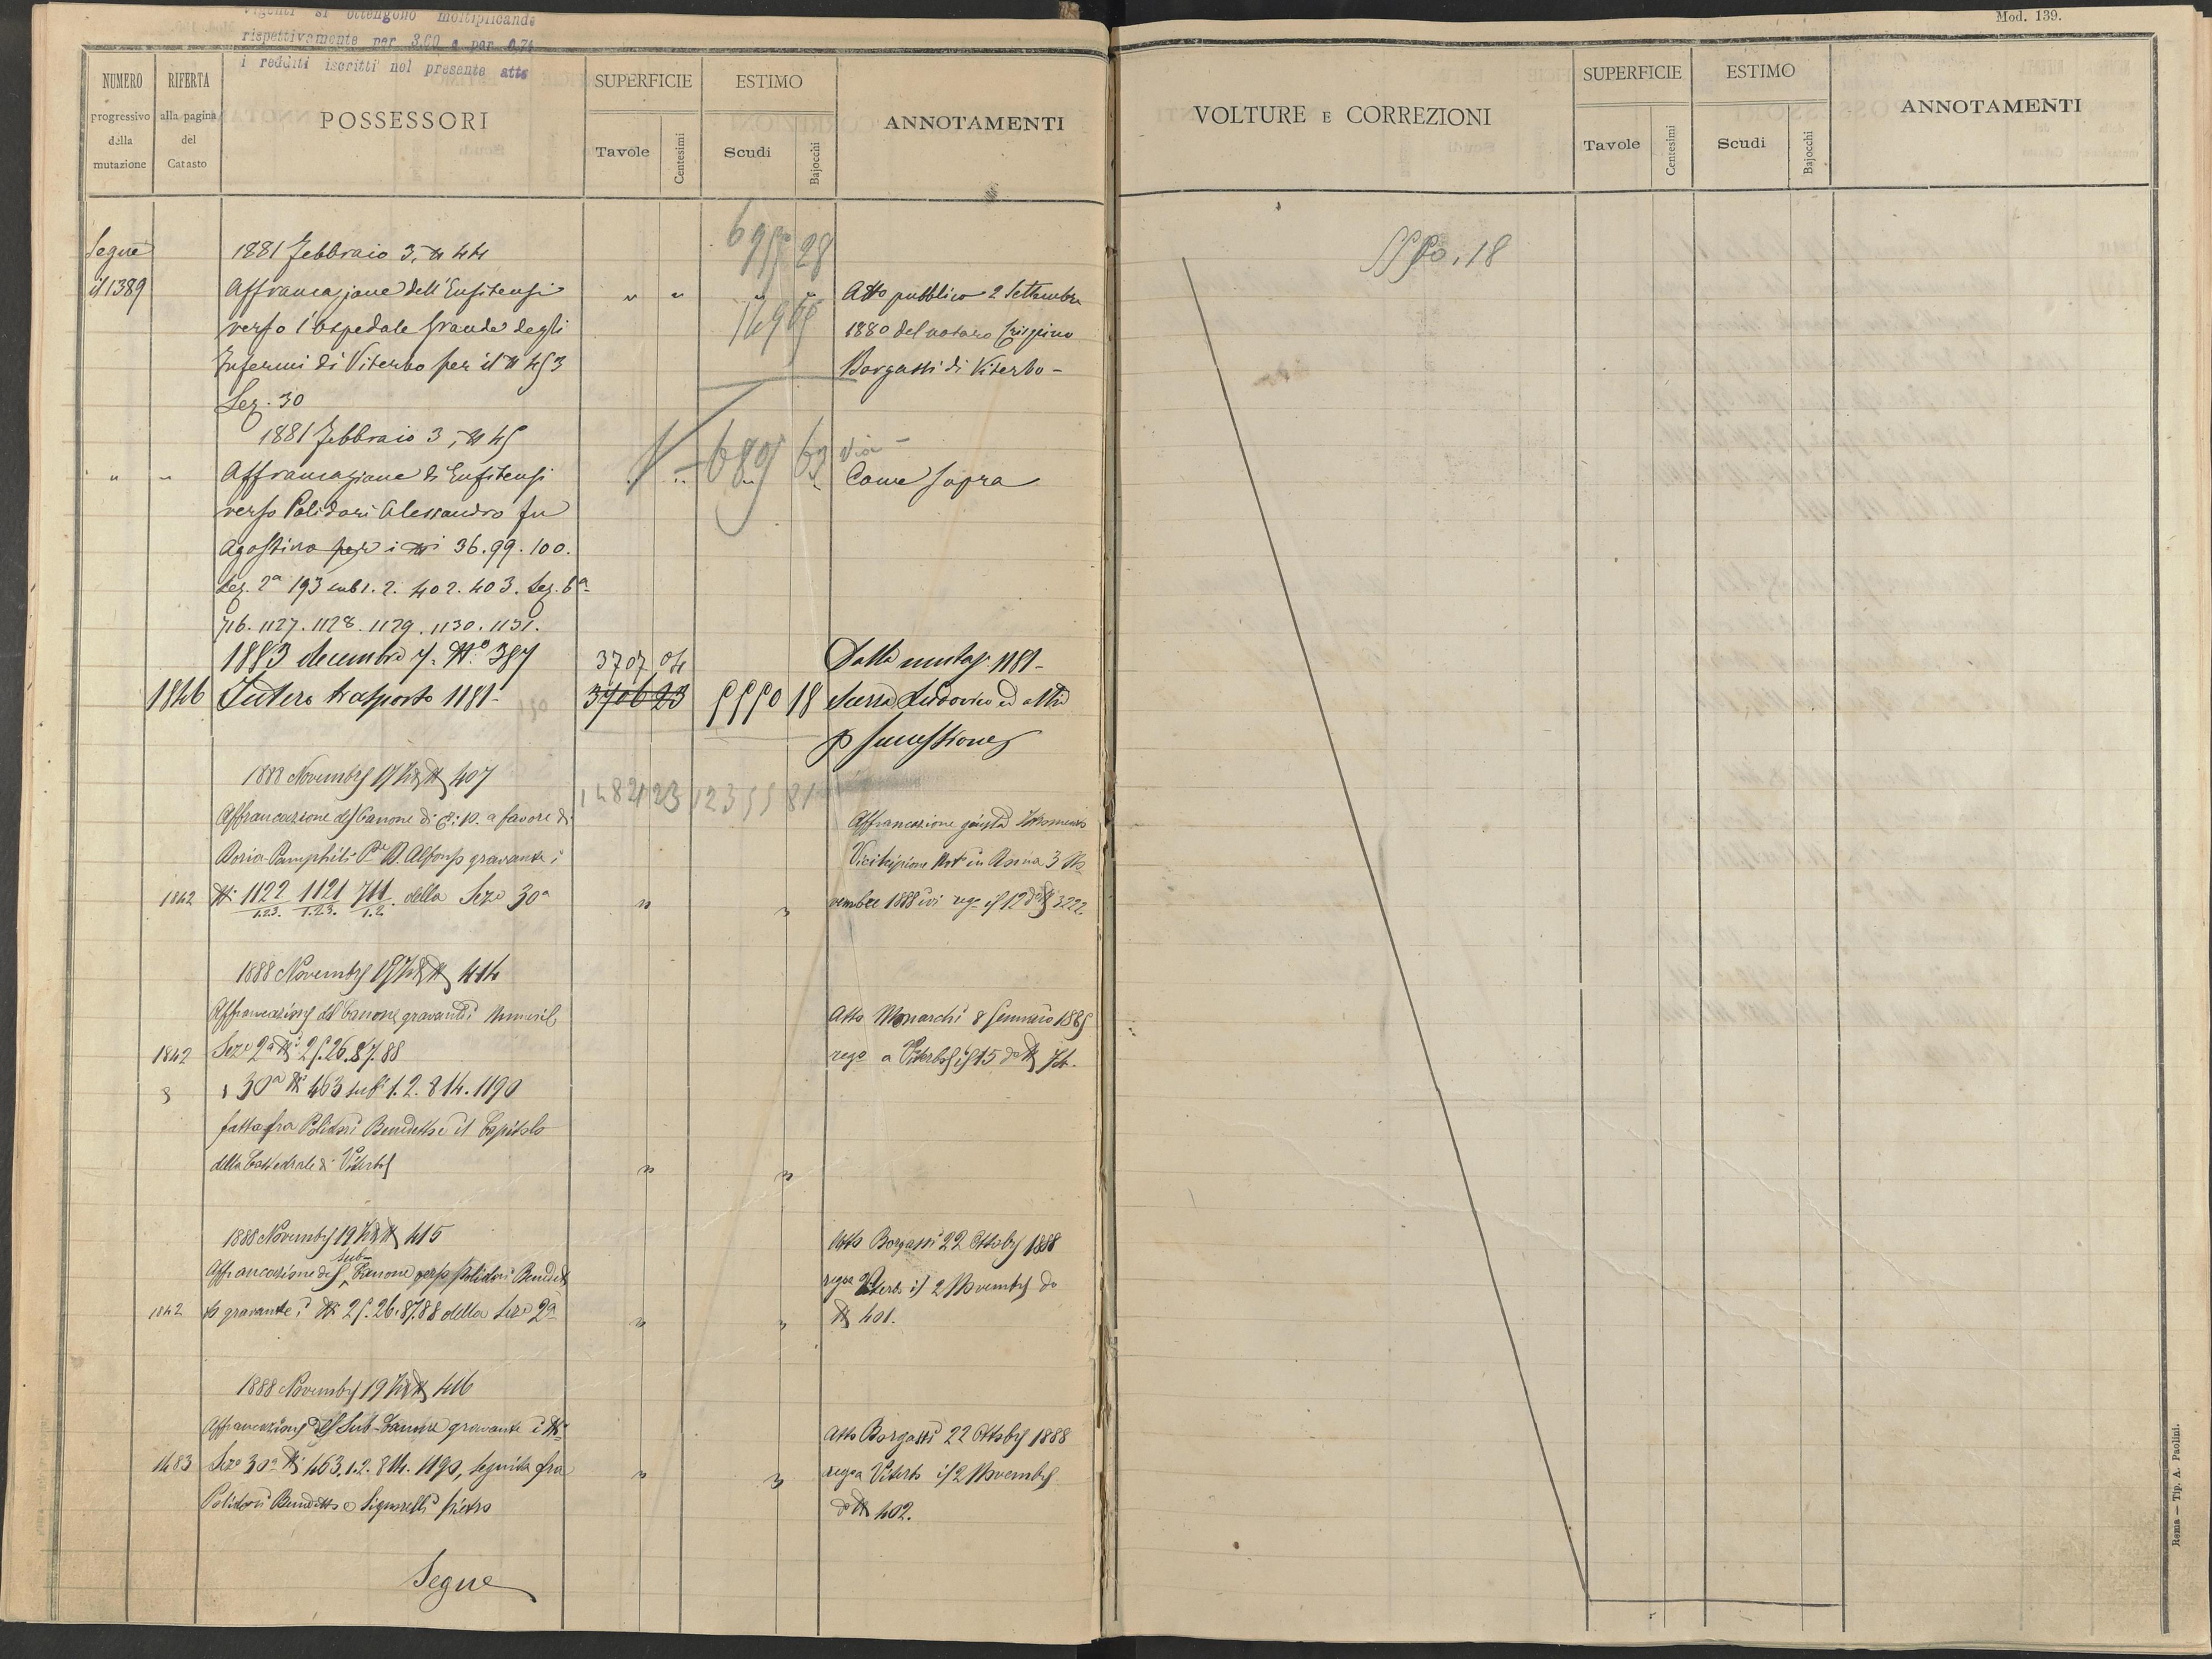 vigenti si ottengono moltiplicando
rispettivamente per 3.00 e per 0.74
i redditi iscritti nel presente atto
NUMERO progressivo della mutazione
RIFERTA alla pagina del Catasto
POSSESSORI
SUPERFICIE
Tavole
Centesimi
ESTIMO
Scudi
Bajocchi
ANNOTAMENTI
Segue
il 1389
1881 Febbraio 3, N 44
Affrancazione dell'Enfiteusi
verso l'Ospedale Grande degli
Infermi di Viterbo per il N 453
Sez. 30
695 28
Atto pubblico 2 Settembre
1880 del notaro Crispino
Borgassi di Viterbo -
1881 Febbraio 3, N 45
" " Affrancazione di Enfiteusi
verso Polidori Alessandro fu
Agostino per i Ni 36. 99. 100.
Sez. 2a 193 sub 1. 2. 402. 403. Sez. 6a
716. 1127. 1128. 1129. 1130. 1131.
689 63
Come sopra
1883 decembre 7. No 387
1846 Intero trasporto 1181-
3707 04
3706 23
5550 18
Dalla mutaz. 1181-
Ludovico ed altri
p successione
1888 Novembre 17 407
12355 81
Affrancazione del Canone di a favore di
Doria Pamphili Pe D. Alfonso gravante i
1842 Ni 1122 1121 711 della Seze 30a
1.2.3. 1.2.3. 1.2.
Affrancazione giusta
in Roma 3 No
vembre 1888 ivi rega il 12 do N 3222
1888 Novembre 414
Affrancazione del Canone gravante i
1842 Seze 2a Ni 25. 26. 87. 88
30a Ni 463 sub 1. 2. 814. 1190
fatta fra Polidori Benedetto e il Capitolo
della Cattedrale di Viterbo
Atto Monarchi 8 Gennaio 1885
rego a Viterbo il 15 do N 74.
1888 Novembre 19 415
sub-
Affrancazione del Canone verso Polidori Benedet
1842 to gravante i Ni 25. 26. 87. 88 della Seze 2a
Atto Borgassi 22 Ottobre 1888
rega Viterbo il 2 Novembre do
N 401.
1888 Novembre 19 416
Affrancazione del Sub-Canone gravante i Ni
1483 Seze 30a Ni 463. 1. 2. 814. 1190, seguita fra
Polidori Benedetto e Signorelli Pietro
Atto Borgassi 22 Ottobre 1888
rega Viterbo il 2 Novembre
do N 402.
Segue
Mod. 139.
VOLTURE E CORREZIONI
SUPERFICIE
Tavole
Centesimi
ESTIMO
Scudi
Bajocchi
ANNOTAMENTI
5550.18
Roma — Tip. A. Paolini.